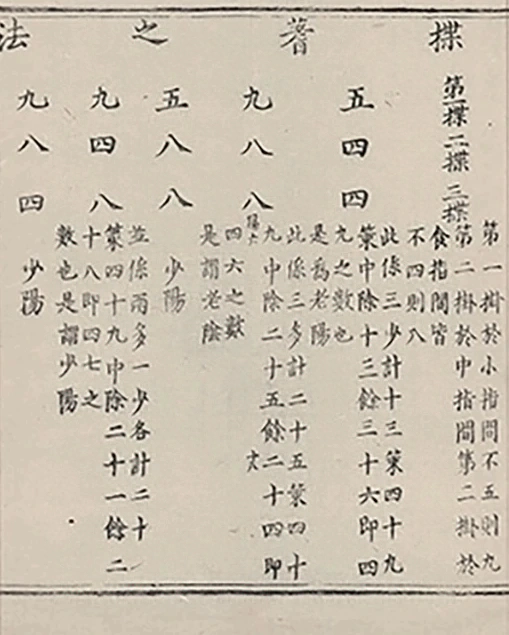 揲蓍之法
第一揲二揲三揲
第一掛於小指間不五則九
第二掛於中指間第二掛於
食指間皆
不四則八
五四四
此係三少計十三策四十九
策中除十三餘三十六即四
九之數也
是為老陽
九八八
此係三多計二十五策四十
九中除二十五餘二十四即
四六之數
是謂老陰
五八八
少陽
九四八
並係兩多一少各計二十
策四十九中除二十一餘二
十八即四七之
數也是謂少陽
九八四
少陽